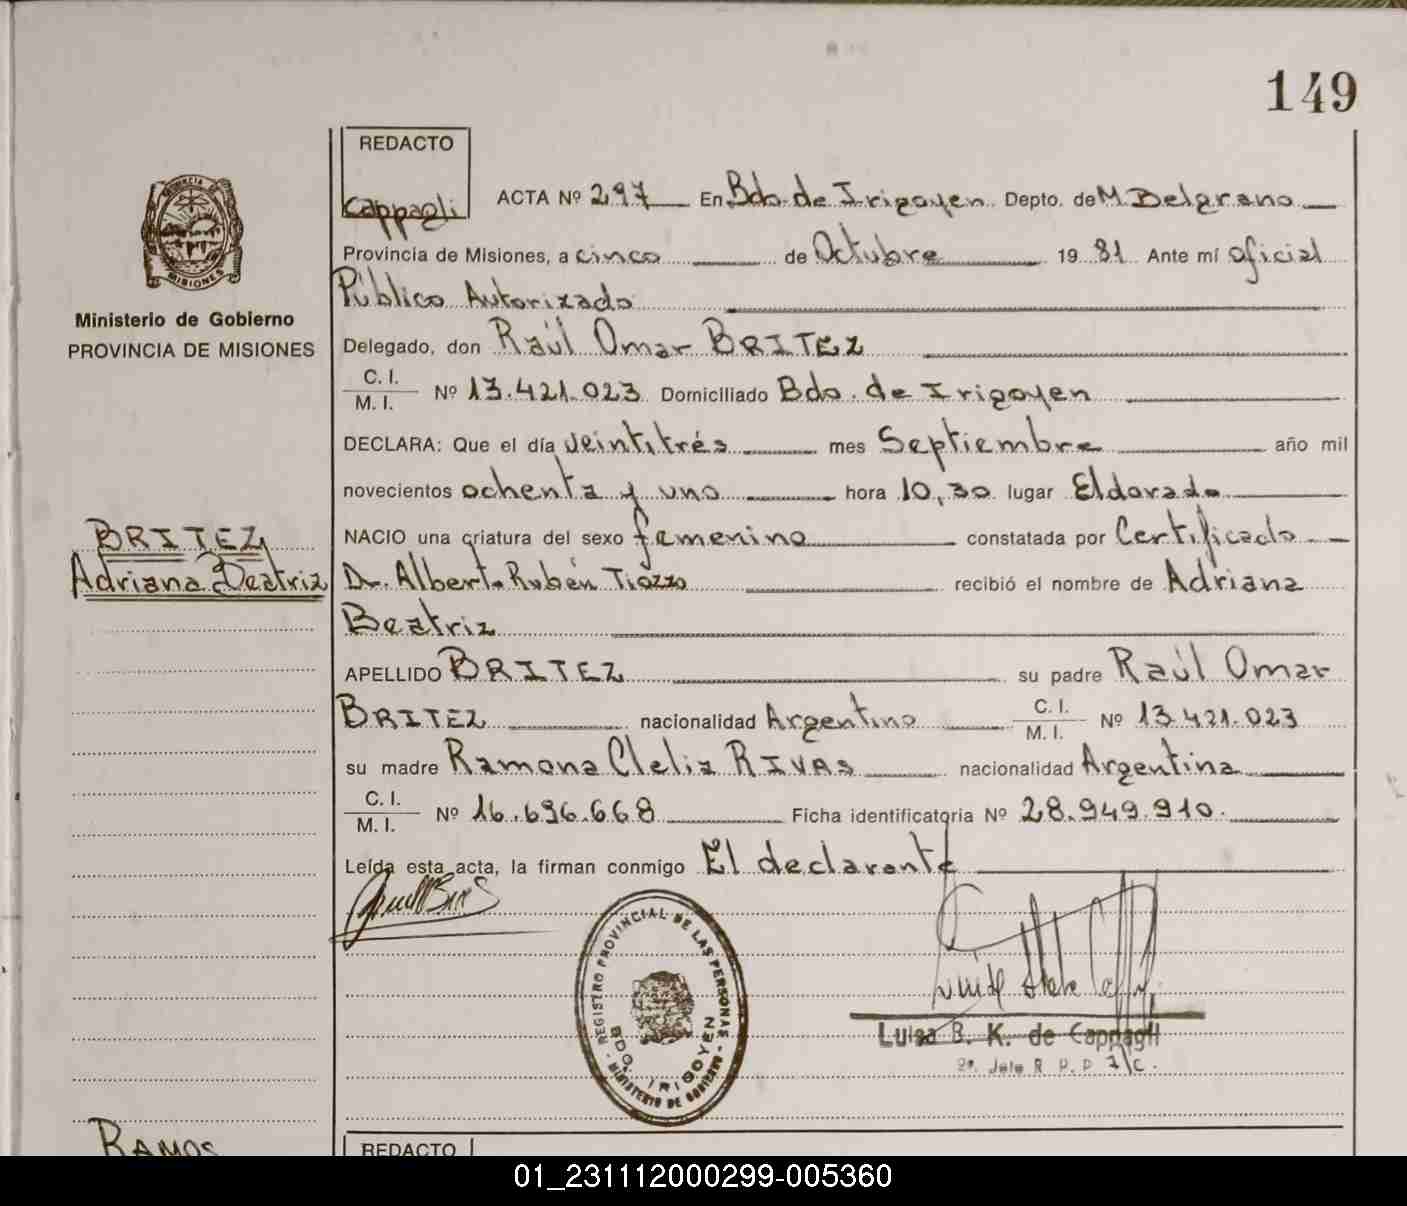 149
REDACTO
Cappagli
ACTA Nº 297 En Bdo. de Irigoyen Depto. de M. Belgrano
Provincia de Misiones, a cinco de Octubre 19 81 Ante mí oficial
Público Autorizado
Delegado, don Raúl Omar BRITEZ
C. I.
M. I. Nº 13.421.023 Domiciliado Bdo. de Irigoyen
DECLARA: Que el día veintitrés mes Septiembre año mil
novecientos ochenta y uno hora 10,30 lugar Eldorado
NACIO una criatura del sexo femenino constatada por Certificado
Dr. Alberto Rubén Tiozzo recibió el nombre de Adriana
Beatriz
APELLIDO BRITEZ su padre Raúl Omar
BRITEZ nacionalidad Argentino C. I. M. I. Nº 13.421.023
su madre Ramona Clelia RIVAS nacionalidad Argentina
C. I.
M. I. Nº 16.696.668 Ficha identificatoria Nº 28.949.910.
Leída esta acta, la firman conmigo El declarante
REGISTRO PROVINCIAL DE LAS PERSONAS
MINISTERIO DE GOBIERNO
BDO. IRIGOYEN
Luisa B. K. de Cappagli
REDACTO
PROVINCIA DE MISIONES
Ministerio de Gobierno
PROVINCIA DE MISIONES
BRITEZ
Adriana Beatriz
RAMOS
01_231112000299-005360